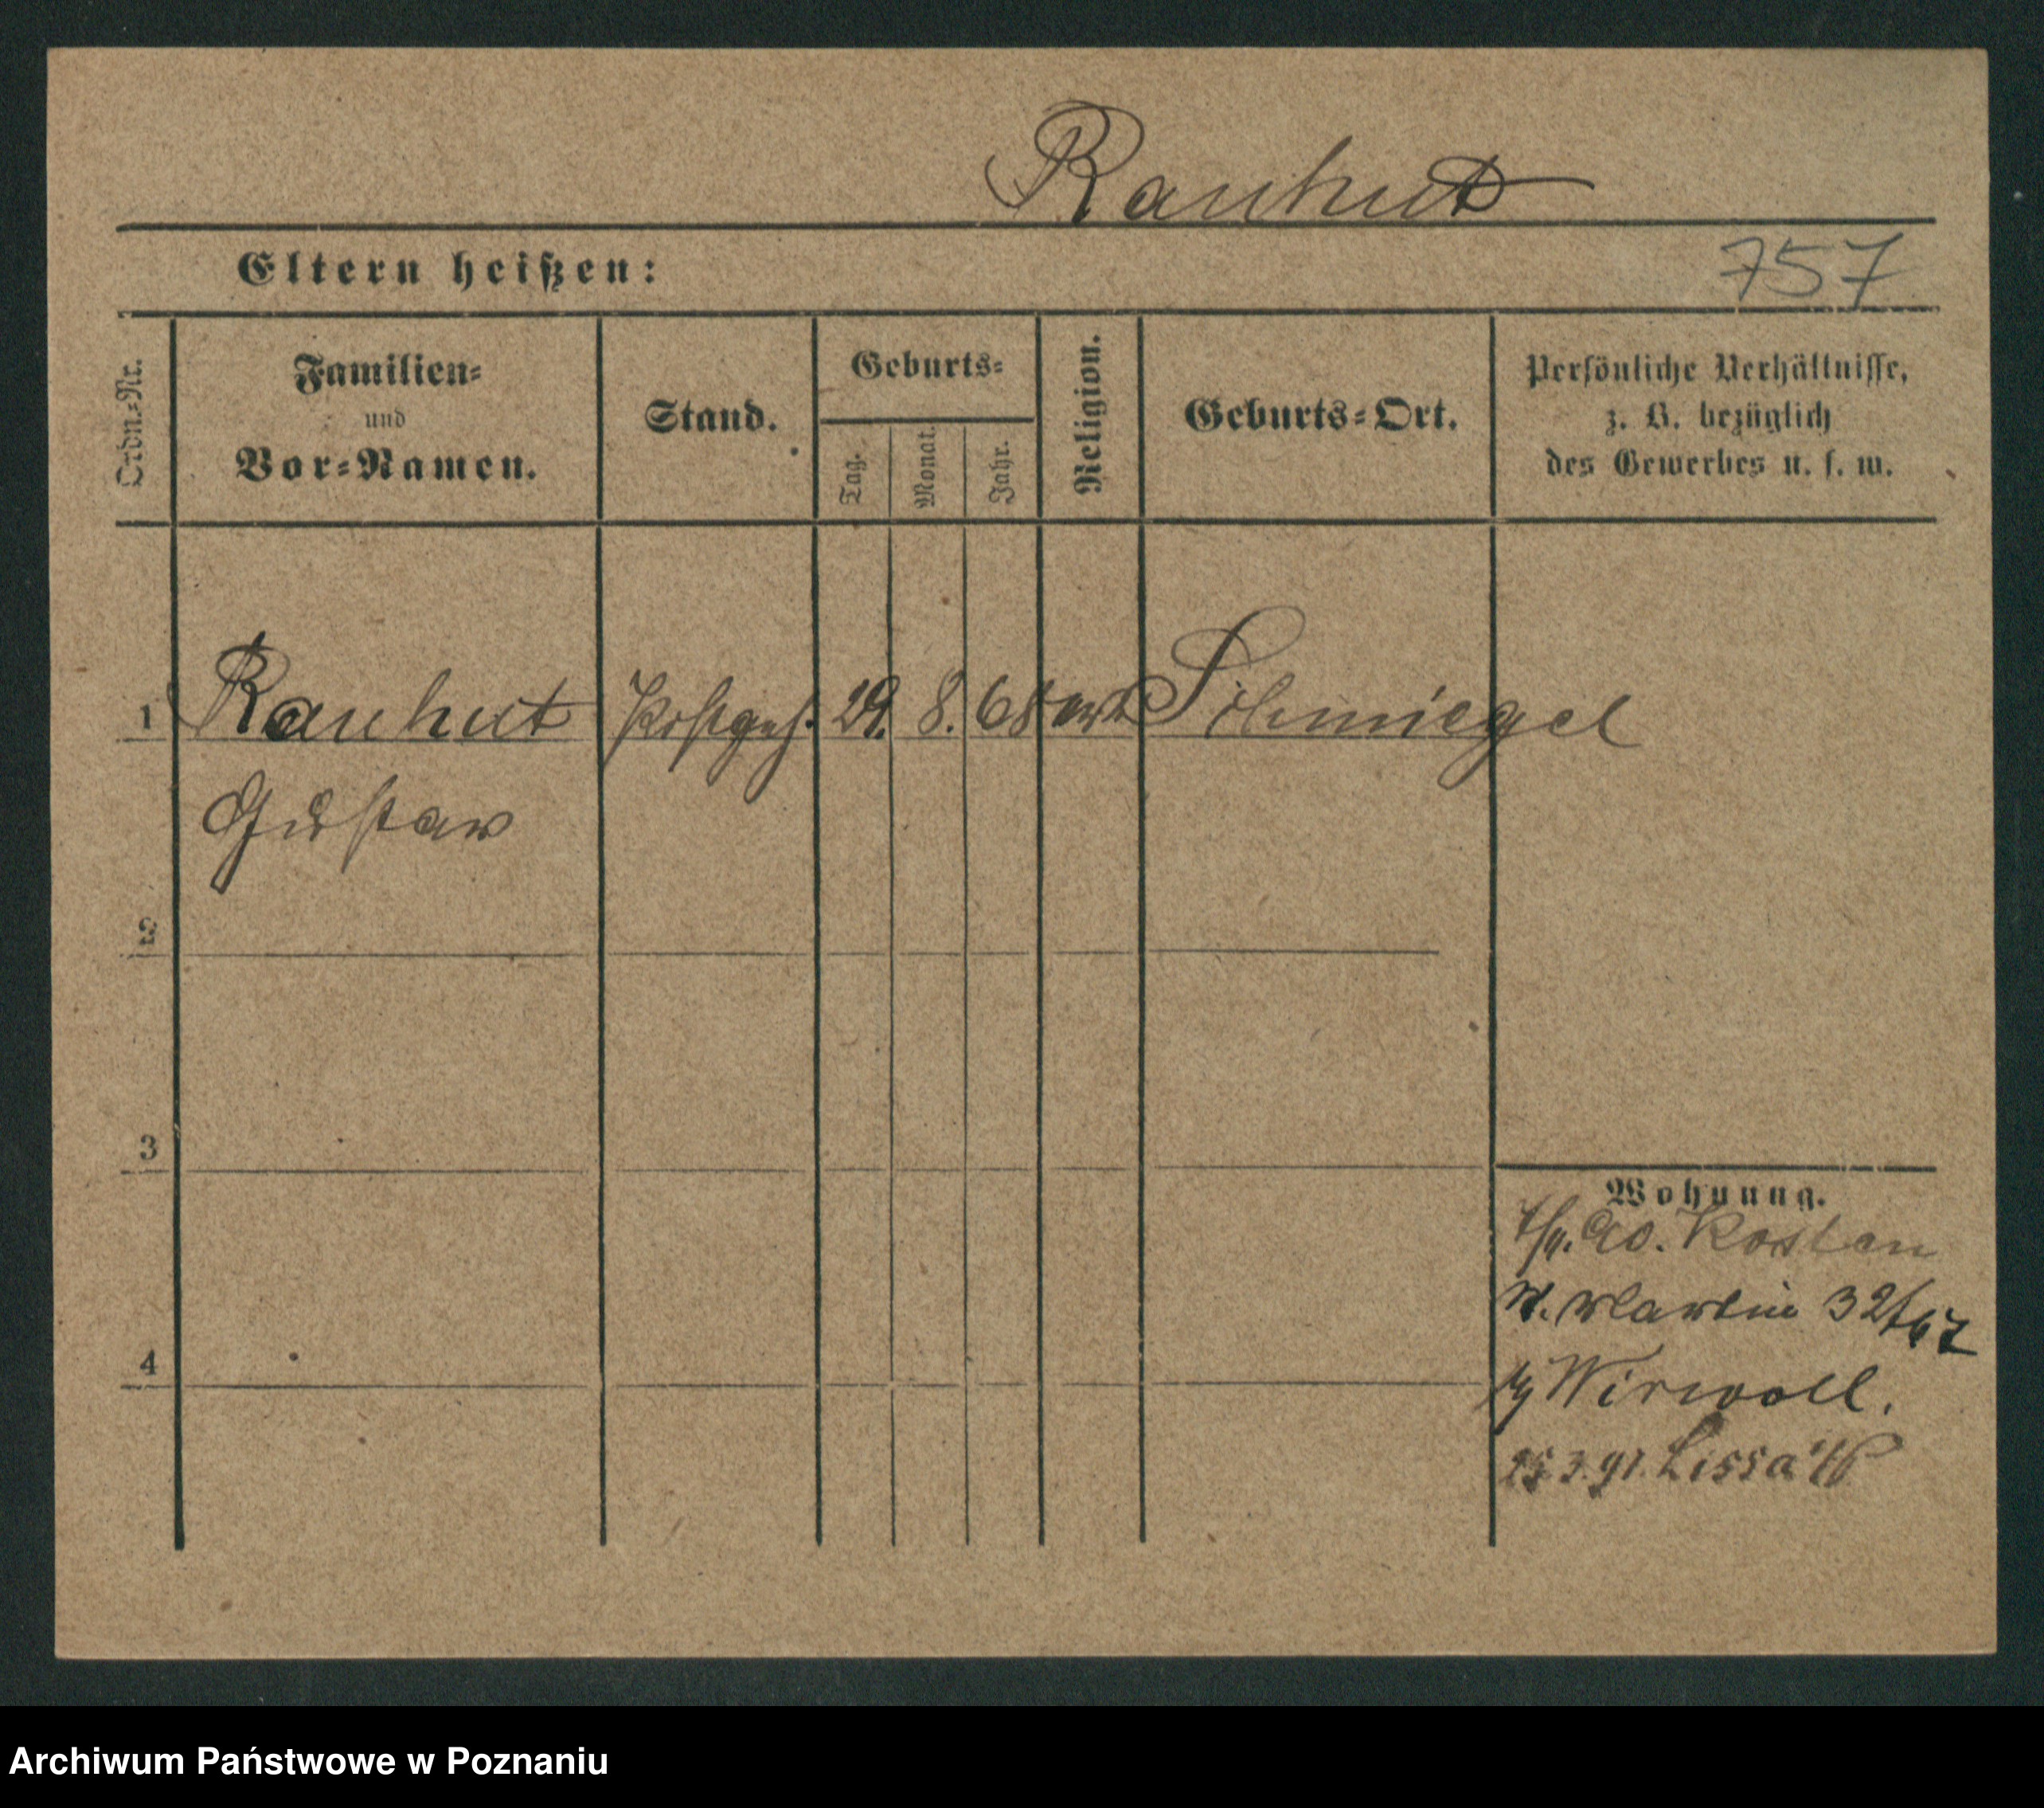 Rauhut
Eltern heißen:
757
Ordn.-Nr.
Familien-
und
Vor-Namen.
Stand.
Geburts-
Tag.
Monat.
Jahr.
Religion.
Geburts-Ort.
Persönliche Verhältnisse,
z. B. bezüglich
des Gewerbes u. s. w.
1 Rauhut Postgeh. 29. 8. 68 Schmiegel
Gustav
2
3
Wohnung.
90. Kosten
St. Martin 32/67
4
Wirwoll.
25.3.91. Lissa
Archiwum Państwowe w Poznaniu